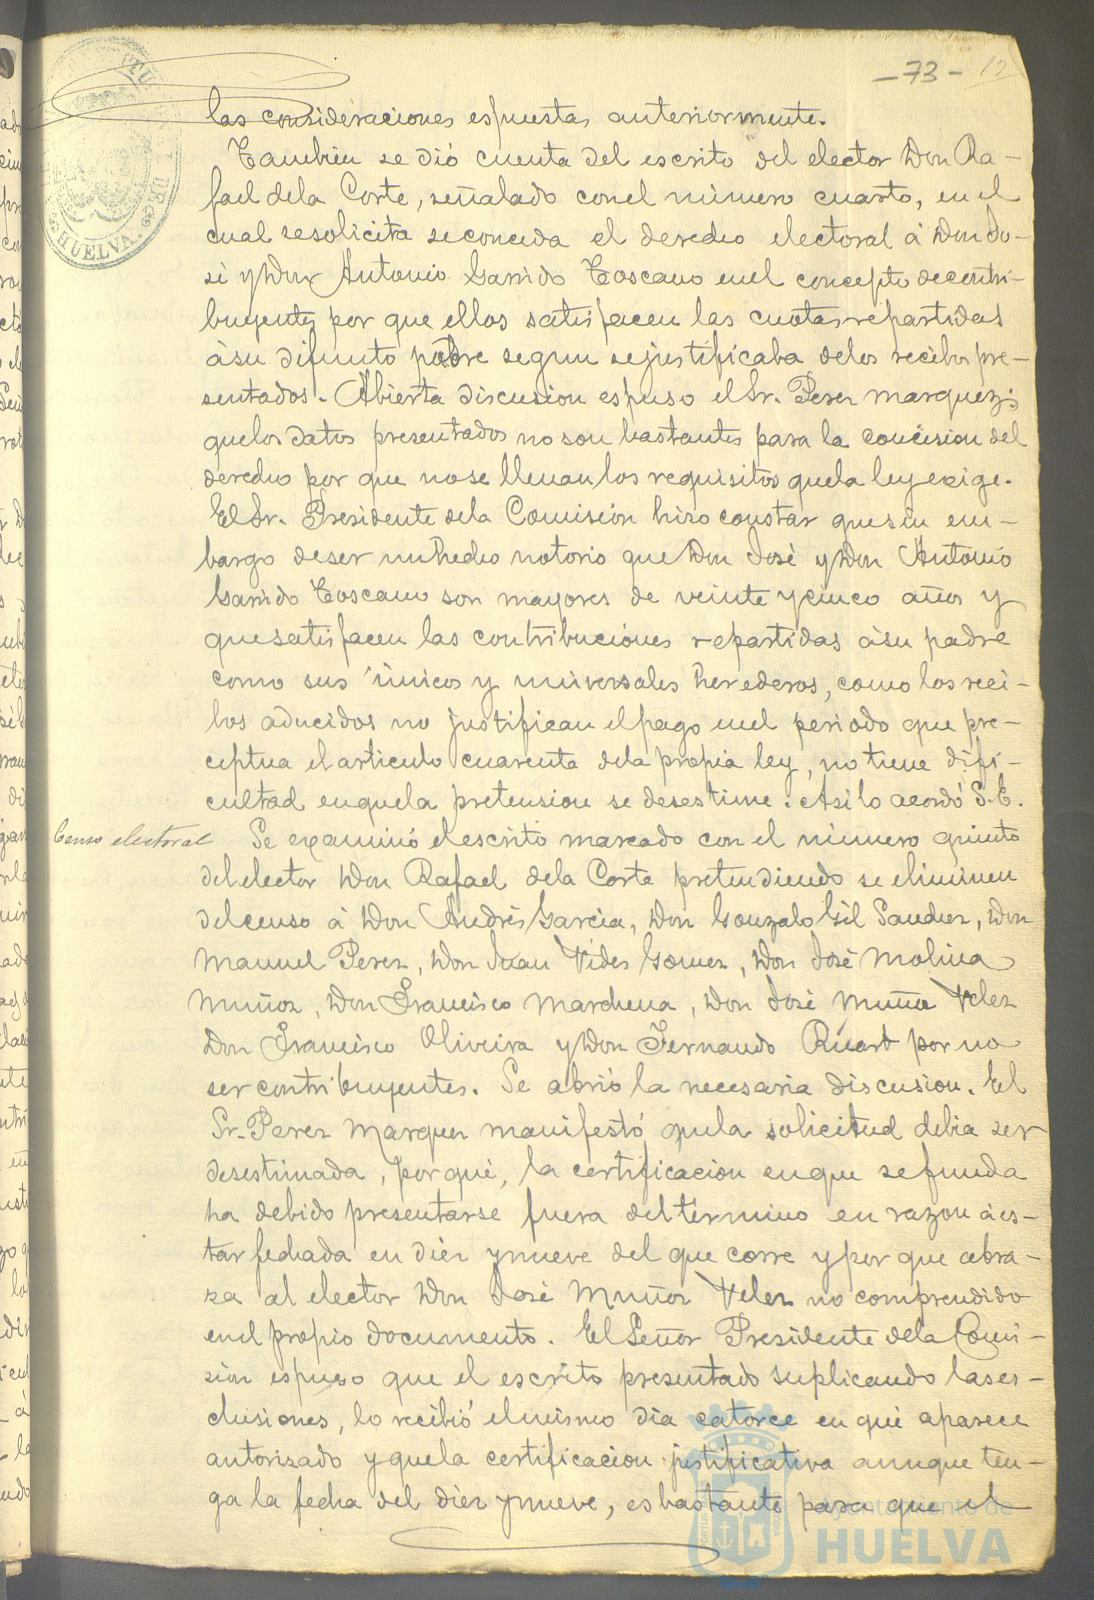 -73- 12
las consideraciones espuestas anteriormente.
Tambien se dió cuenta del escrito del elector Don Ra-
fael dela Corte, señalado conel número cuarto, en el
cual sesolicita seconceda el derecho electoral á Don Jo-
sé y Don Antonio Garrido Toscano enel concepto decontri-
buyentes por que ellos satisfacen las cuotas repartidas
ásu difunto padre segun sejustificaba delos recibos pre-
sentados. Abierta discusion espuso el Sr. Perez Marquez;
quelos datos presentados no son bastantes para la concesion del
derecho por que nose llenan los requisitos quela ley exige.
El Sr. Presidente dela Comisión hizo constar quesin em-
bargo deser unhecho notorio que Don José y Don Antonio
Garrido Toscano son mayores de veinte ycinco años y
quesatisfacen las contribuciones repartidas ásu padre
como sus únicos y universales herederos, como los reci-
bos aducidos no justifican elpago enel periodo que pre-
ceptua el articulo cuarenta dela propia ley, no tiene difi-
cultad enquela pretension se desestime. Asi lo acordó S.E.
Censo electoral Se examinó elescrito marcado con el número quinto
delelector Don Rafael dela Corte pretendiendo se eliminen
delcenso á Don Andrés Garcia, Don Gonzalo Gil Sanchez, Don
Manuel Perez, Don Juan Vides Gomez, Don José Molina
Muñoz, Don Francisco Marchena, Don José Muñoz Velez
Don Francisco Oliveira y Don Fernando Ruart por no
ser contribuyentes. Se abrió la necesaria discusion. El
Sr. Perez Marquez manifestó quela solicitud debia ser
desestimada, por qué, la certificacion enque sefunda
ha debido presentarse fuera deltérmino en razon áes-
tar fechada en diez ynueve del que corre y por que abra-
za al elector Don José Muñoz Velez no comprendido
enel propio documento. El Señor Presidente dela Comi-
sion espuso que el escrito presentado suplicando lases-
clusiones, lo recibió elmismo dia catorce en qué aparece
autorizado y quela certificacion justificativa aunque ten-
ga la fecha del diez ynueve, es bastante para que el
HUELVA.
Ayuntamiento de
HUELVA